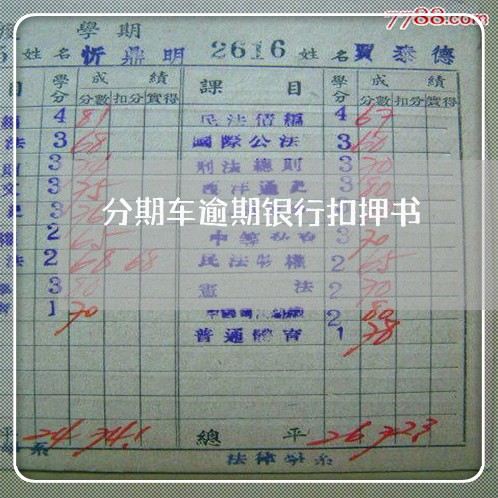 7788.com
學期
姓名 忻鼎明 2616 姓名 賈泰德
目 學分 成績 課目 學分 成績
分數 扣分 實得 分數 扣分 實得
4 81 民法債編 4 67
法 3 68 國際公法 3 60
3 刑法總則 3 70
3 75 西洋通史 3 80
分期车逾期银行扣押书
2 65 3 70
法 2 68 68 民法物權 2 65
3 80 憲法 2 70
1 70 2 80
普通體育 1 78
平 24 74.1 總平 26 72.3
系 法律學系